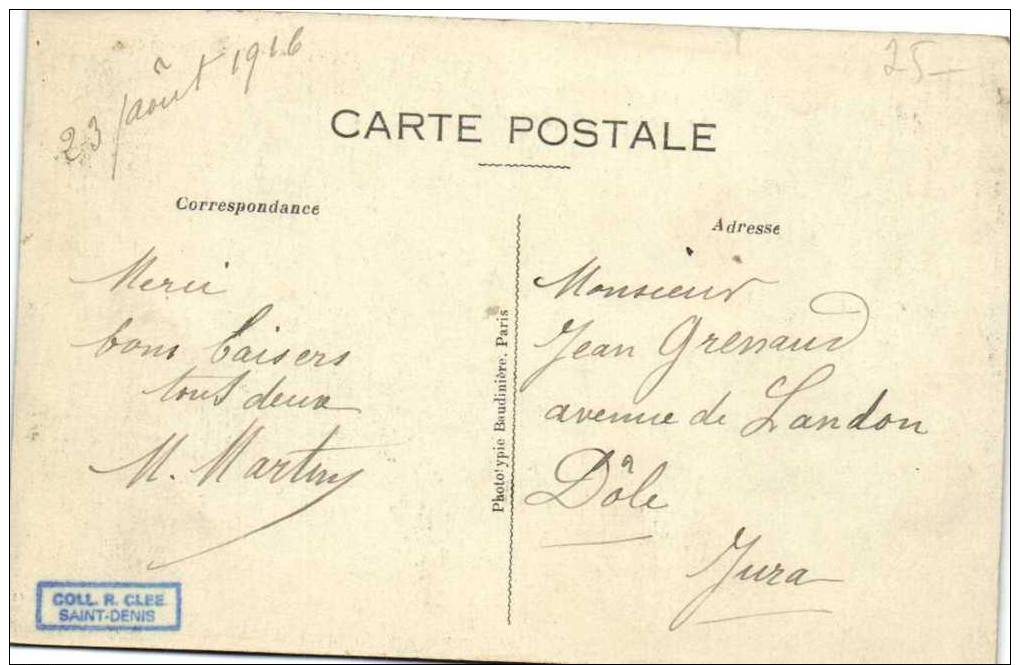 23 août 1916
25-
CARTE POSTALE
Correspondance
Merci
bons baisers
tous deux
M. Martin
Phototypie Baudinière, Paris
Adresse
Monsieur
Jean Grenaud
avenue de Landon
Dôle
Jura
COLL. R. CLEE
SAINT-DENIS